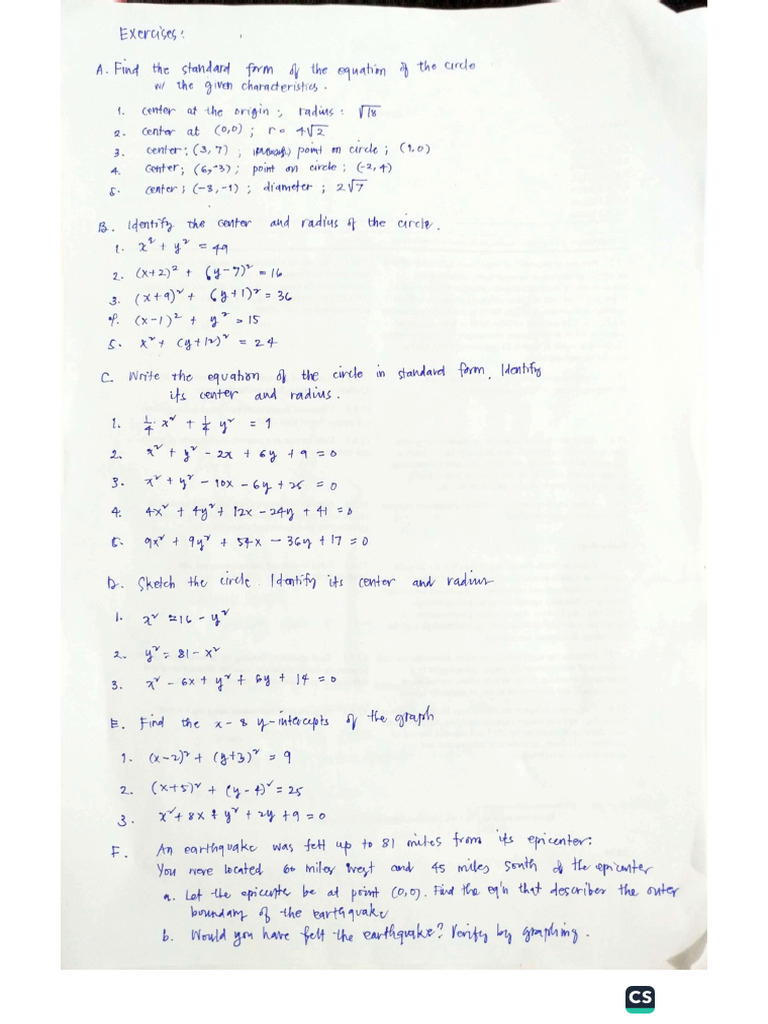 Exercises:
A. Find the standard form of the equation of the circle
w/ the given characteristics.
1. center at the origin ; radius : √18
2. center at (0,0) ; r = 4√2
3. center ; (3, 7) ; point on circle ; (1,0)
4. center ; (6,-3) ; point on circle ; (-2, 4)
5. center ; (-3, -1) ; diameter ; 2√7
B. Identify the center and radius of the circle.
1. x² + y² = 49
2. (x+2)² + (y-7)² = 16
3. (x+9)² + (y+1)² = 36
4. (x-1)² + y² = 15
5. x² + (y+12)² = 24
C. Write the equation of the circle in standard form. Identify
its center and radius.
1. 1/4 x² + 1/4 y² = 1
2. x² + y² - 2x + 6y + 9 = 0
3. x² + y² - 10x - 6y + 25 = 0
4. 4x² + 4y² + 12x - 24y + 41 = 0
5. 9x² + 9y² + 54x - 36y + 17 = 0
D. Sketch the circle. Identify its center and radius
1. x² = 16 - y²
2. y² = 81 - x²
3. x² - 6x + y² + 6y + 14 = 0
E. Find the x- & y-intercepts of the graph
1. (x-2)² + (y+3)² = 9
2. (x+5)² + (y-4)² = 25
3. x² + 8x + y² + 2y + 9 = 0
F. An earthquake was felt up to 81 miles from its epicenter.
You were located 60 miles west and 45 miles south of the epicenter
a. Let the epicenter be at point (0,0). Find the eq'n that describes the outer
boundary of the earthquake
b. Would you have felt the earthquake? Verify by graphing.
CS